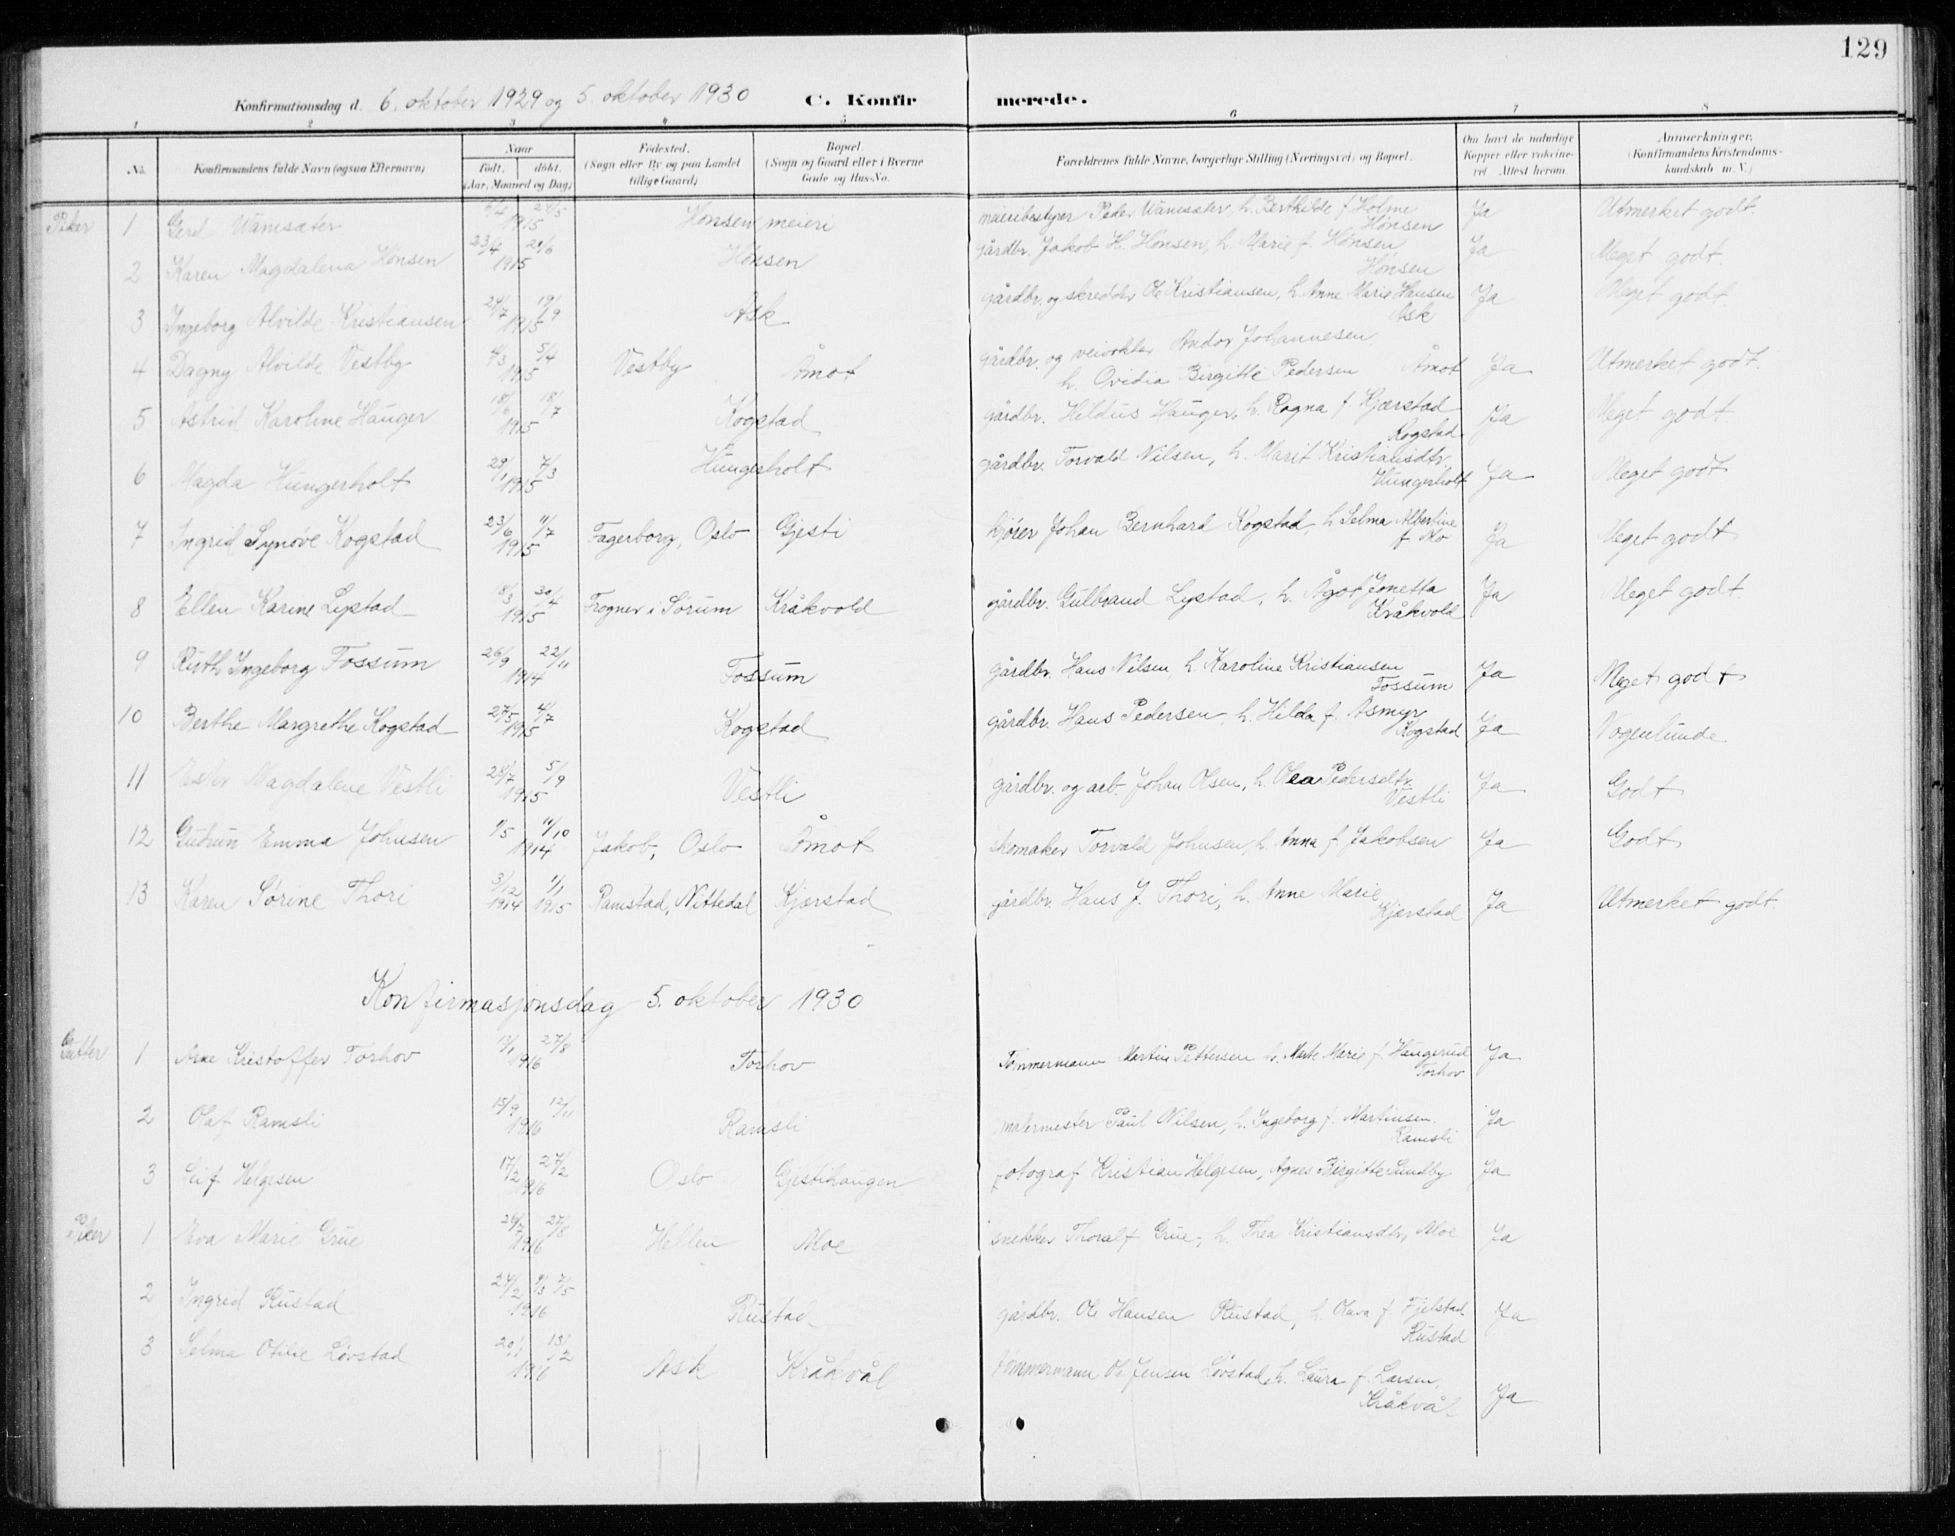 129
Konfirmationsdag d. 6. oktober 1929 og 5. oktober 1930 C. Konfirmerede.
1 2 3 4 5 6 7 8
No. Konfirmandens fulde Navn (ogsaa Efternavn) Naar født. døbt. (Aar, Maaned og Dag) Fødested. (Sogn eller By og paa Landet tillige Gaard) Bopæl. (Sogn og Gaard eller i Byerne Gade og Hus-No. Forældrenes fulde Navne, borgerlige Stilling (Næringsvei) og Bopæl. Om havt de naturlige Kopper eller vaksineret Attest herom. Anmærkninger. (Konfirmandens Kristendomskundskab m. V.)
Piker 1 Gerd Wamsæter 24/5 1915 Hønsen meieri meieribestyrer Peder Wamsæter, h. Berthilde f. Holme Hønsen Ja Utmerket godt.
2 Karen Magdalena Hønsen 23/4 20/6 1915 Hønsen gårdbr. Jakob H. Hønsen, h. Marie f. Hønsen Hønsen Ja Meget godt.
3 Ingeborg Alvilde Kristiansen 24/7 19/9 1915 Ask gårdbr. og skredder Ole Kristiansen, h. Anne Marie Hansen Ask Ja Meget godt.
4 Dagny Alvilde Vestby 5/4 1915 Vestby Åmot gårdbr. og veivokter Andor Johannesen
h. Ovidia Birgitte Pedersen Åmot Ja Utmerket godt.
5 Astrid Karoline Hauger 18/6 18/7 1915 Kogstad gårdbr. Hildus Hauger, h. Ragna f. Kjærstad Kogstad Ja Meget godt.
6 Magda Hungerholt 29/1 7/3 1915 Hungerholt gårdbr. Torvald Nilsen, h. Marit Kristiansdtr. Hungerholt Ja Meget godt
7 Ingrid Synøve Kogstad 23/6 11/7 1915 Fagerborg, Oslo Gjesti kjører Johan Bernhard Kogstad, h. Selma Albertine f. Mo Ja Meget godt
8 Ellen Karine Lystad 8/3 30/4 1915 Frogner i Sørum Kråkvold gårdbr. Gulbrand Lystad, h. Ågot Jonetta Kråkvold Ja Meget godt
9 Ruth Ingeborg Fossum 26/9 22/11 1914 Fossum gårdbr. Hans Nilsen, h. Karoline Kristiansen Fossum Ja Meget godt
10 Berthe Margrethe Kogstad 27/5 4/7 1915 Kogstad gårdbr. Hans Pedersen, h. Hilda f. Asmyr Kogstad Ja Nogenlunde
11 Ester Magdalene Vestli 28/7 5/9 1915 Vestli gårdbr. og arb. Johan Olsen, h. Olea Pedersdtr. Vestli Ja Godt
12 Gudrun Emma Johnsen 9/5 11/10 1914 Jakob, Oslo Åmot skomaker Torvald Johnsen, h. Anna f. Jakobsen Ja Godt
13 Karen Sørine Thori 3/12 1914 1/1 1915 Ramstad, Nittedal Kjærstad gårdbr. Hans J. Thori, h. Anne Marie Kjærstad Ja Utmerket godt.
Konfirmasjonsdag 5. oktober 1930
Gutter 1 Arne Kristoffer Torhov 13/1 27/8 1916 Torhov Tømmermann Martin Pettersen h. Marte Marie f. Haugerud Torhov Ja
2 Olaf Ramsli 15/9 12/11 1916 Ramsli malermester Paul Nilsen, h. Ingeborg f. Martinsen. Ramsli Ja
3 Leif Helgesen 17/2 27/2 1916 Oslo Gjestihaugen fotograf Kristian Helgesen, Agnes Birgitte Sundby Ja
Piker 1 Eva Marie Grue 26/7 27/8 1916 Hellen Moe snekker Thoralf Grue, h. Thea Kristiansdtr, Moe Ja
2 Ingrid Rustad 24/2 1916 Rustad gårdbr. Ole Hansen Rustad, h. Olava f. Fjelstad Rustad Ja
3 Selma Otilie Løvstad 20/1 13/2 1916 Ask Kråkvål tømmermann Ole Jensen Løvstad, h. Laura f. Larsen, Kråkvål Ja